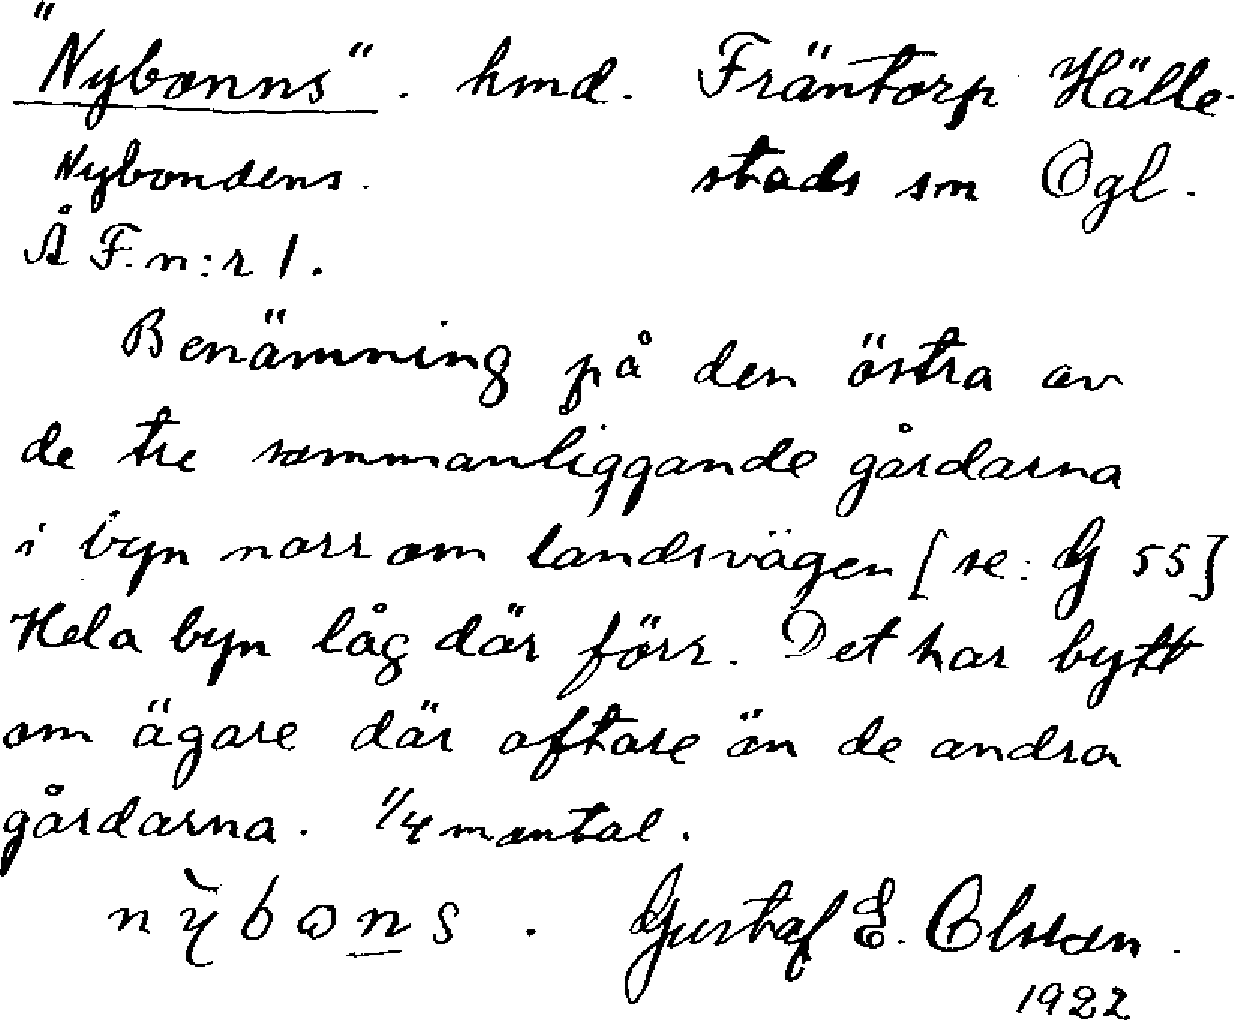 "Nybonns". hmd. Fräntorp Hälle-
Nybondens. stads sn Ögl.
Å F. n:r 1.
Benämning på den östra av
de tre sammanliggande gårdarna
i byn norr om landsvägen [se: G 55]
Hela byn låg där förr. Det har bytt
om ägare där oftare än de andra
gårdarna. 1/4 mantal.
Gustaf E. Olsson.
1922